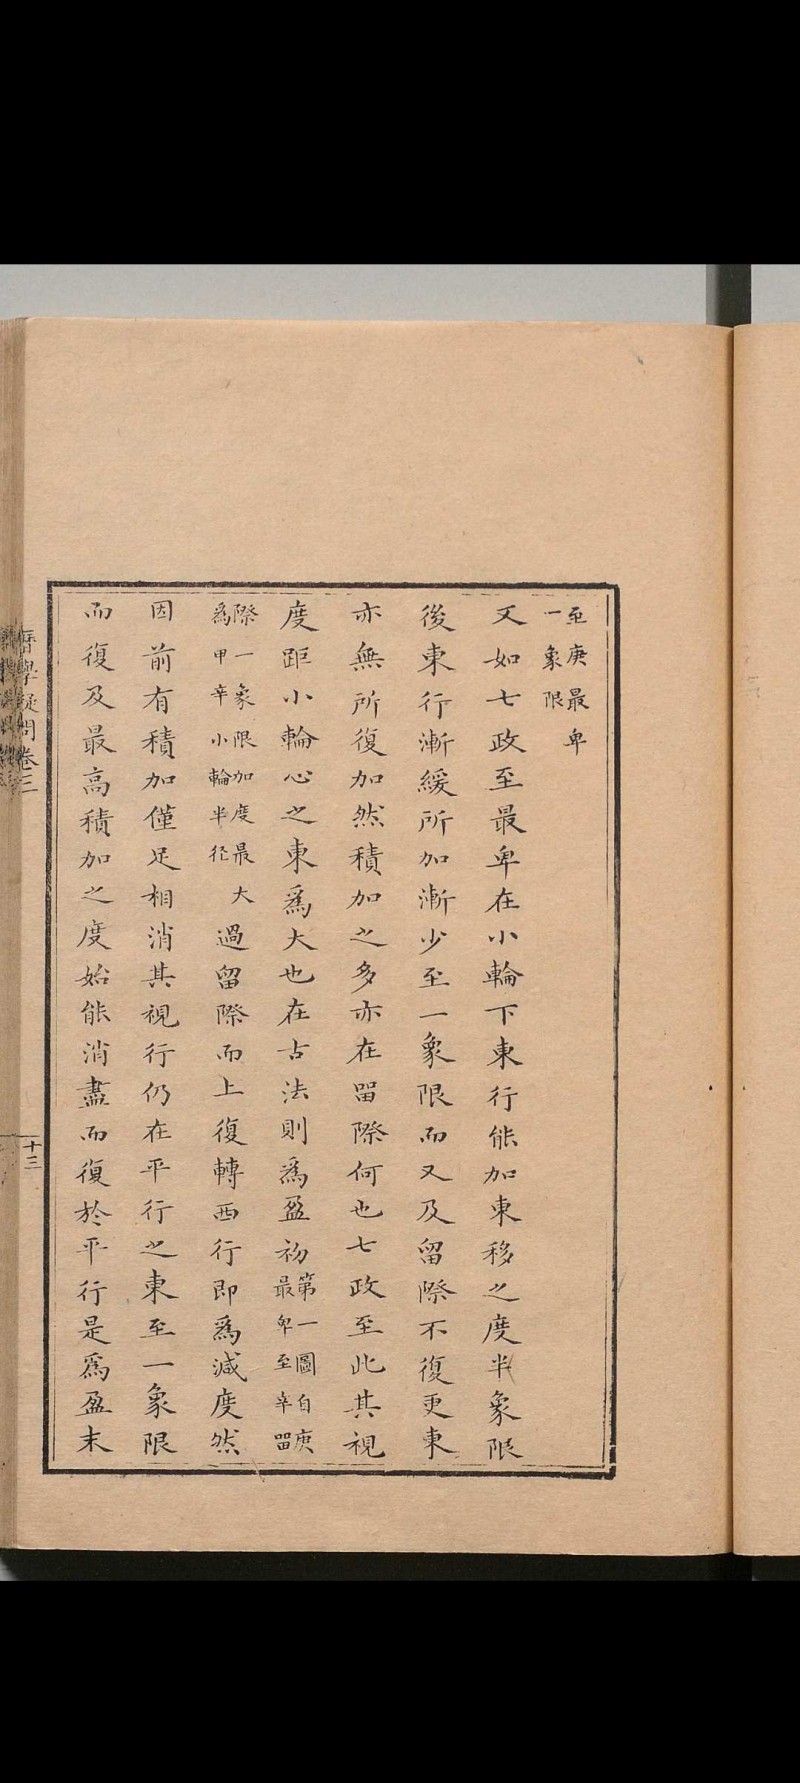 至庚最卑
一象限
又如七政至最卑在小輪下東行能加東移之度半象限
後東行漸緩所加漸少至一象限而又及留際不復更東
亦無所復加然積加之多亦在留際何也七政至此其視
度距小輪心之東爲大也在古法則爲盈初第一圖自庚最卑至辛留
際一象限加度最大爲甲辛小輪半徑過留際而上復轉西行即爲減度然
因前有積加僅足相消其視行仍在平行之東至一象限
而復及最高積加之度始能消盡而復於平行是爲盈末
曆學疑問卷三
十三